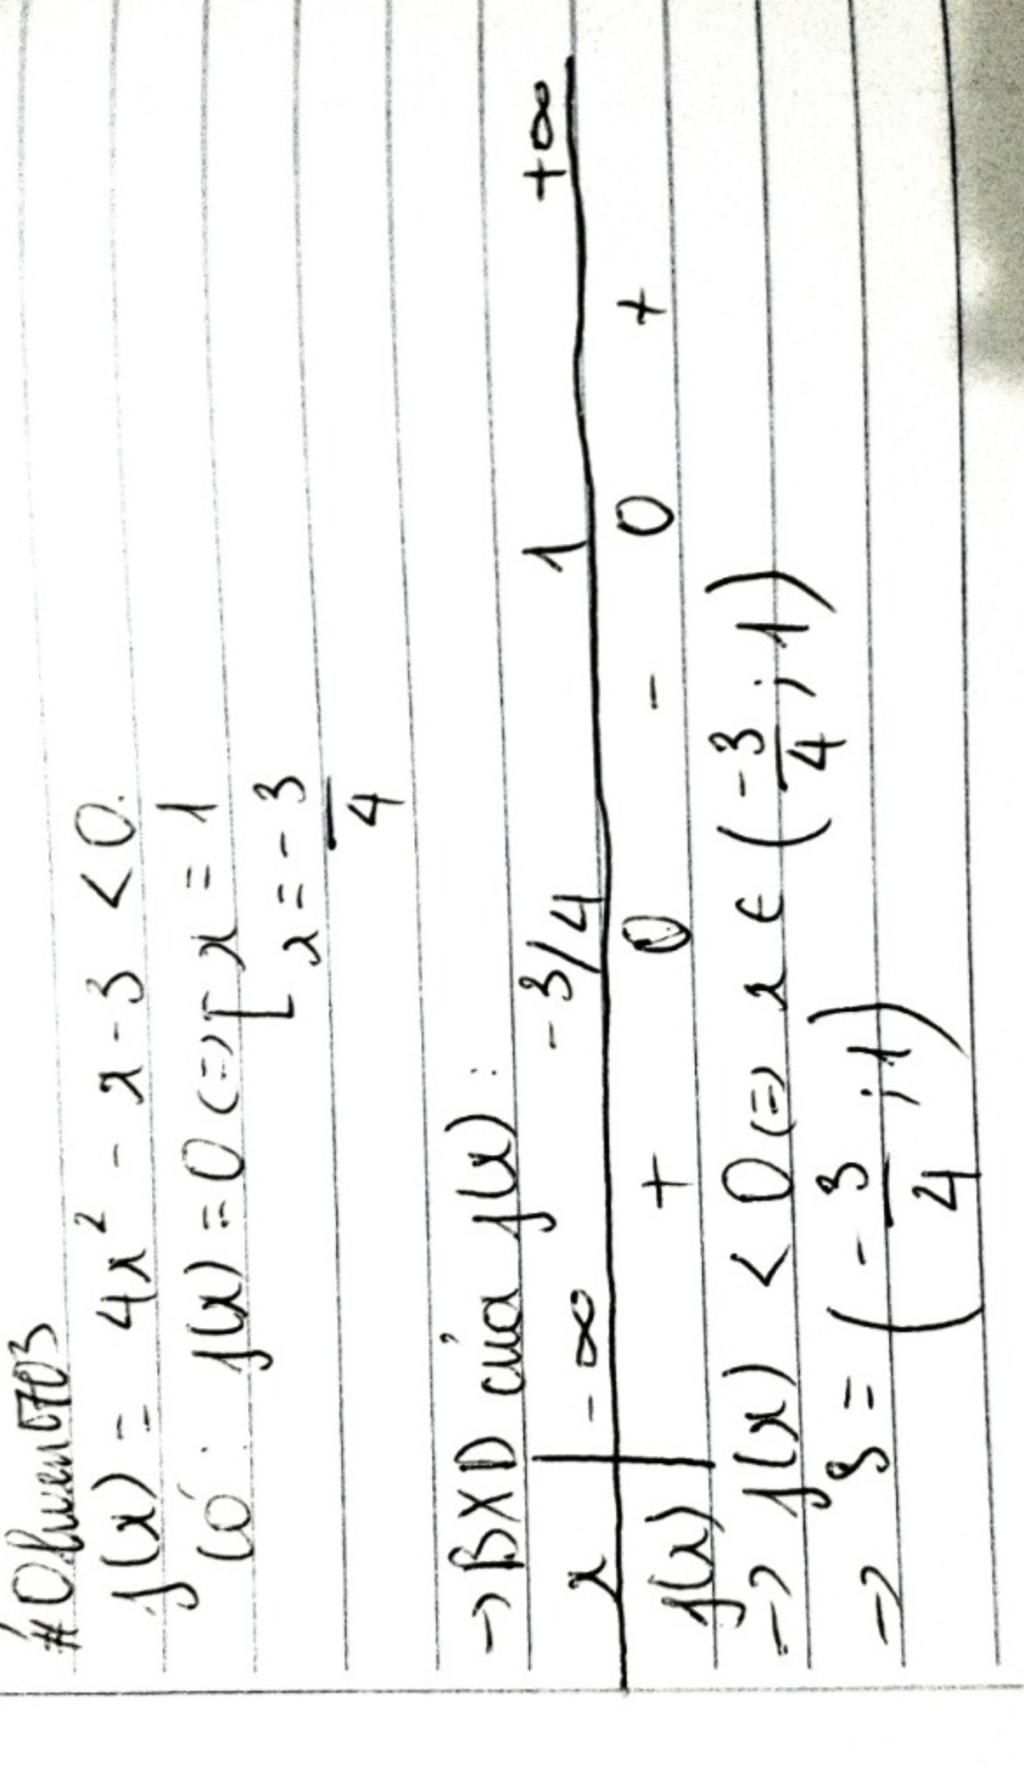 #Oliver0703
f(x) = 4x² - x - 3 < 0.
Có: f(x) = 0 <=> [ x = 1
[ x = - 3/4
-> BXD của f(x):
x -∞ -3/4 1 +∞
f(x) + 0 - 0 +
=> f(x) < 0 <=> x ∈ (-3/4 ; 1)
-> S = (-3/4 ; 1)